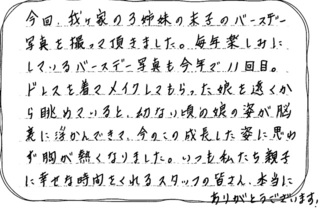 今回、我が家の3姉妹の末子のバースデー
写真を撮って頂きました。毎年楽しみに
しているバースデー写真も今年で11回目。
ドレスを着てメイクしてもらった娘を遠くか
ら眺めていると、幼ない頃の娘の姿が脳
裏に浮かんできて、今のこの成長した姿に思わ
ず胸が熱くなりました。いつも私たち親子
に幸せな時間をくれるスタッフの皆さん、本当に
ありがとうございます!